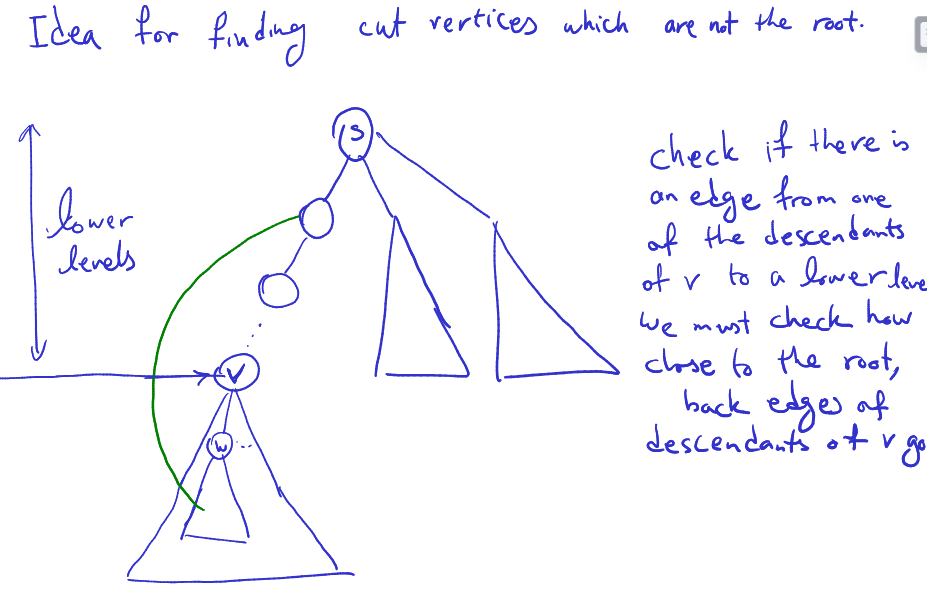 Idea for finding cut vertices which are not the root.
S
lower
levels
v
w
check if there is
an edge from one
of the descendants
of v to a lower leve
we must check how
close to the root,
back edges of
descendants of v go